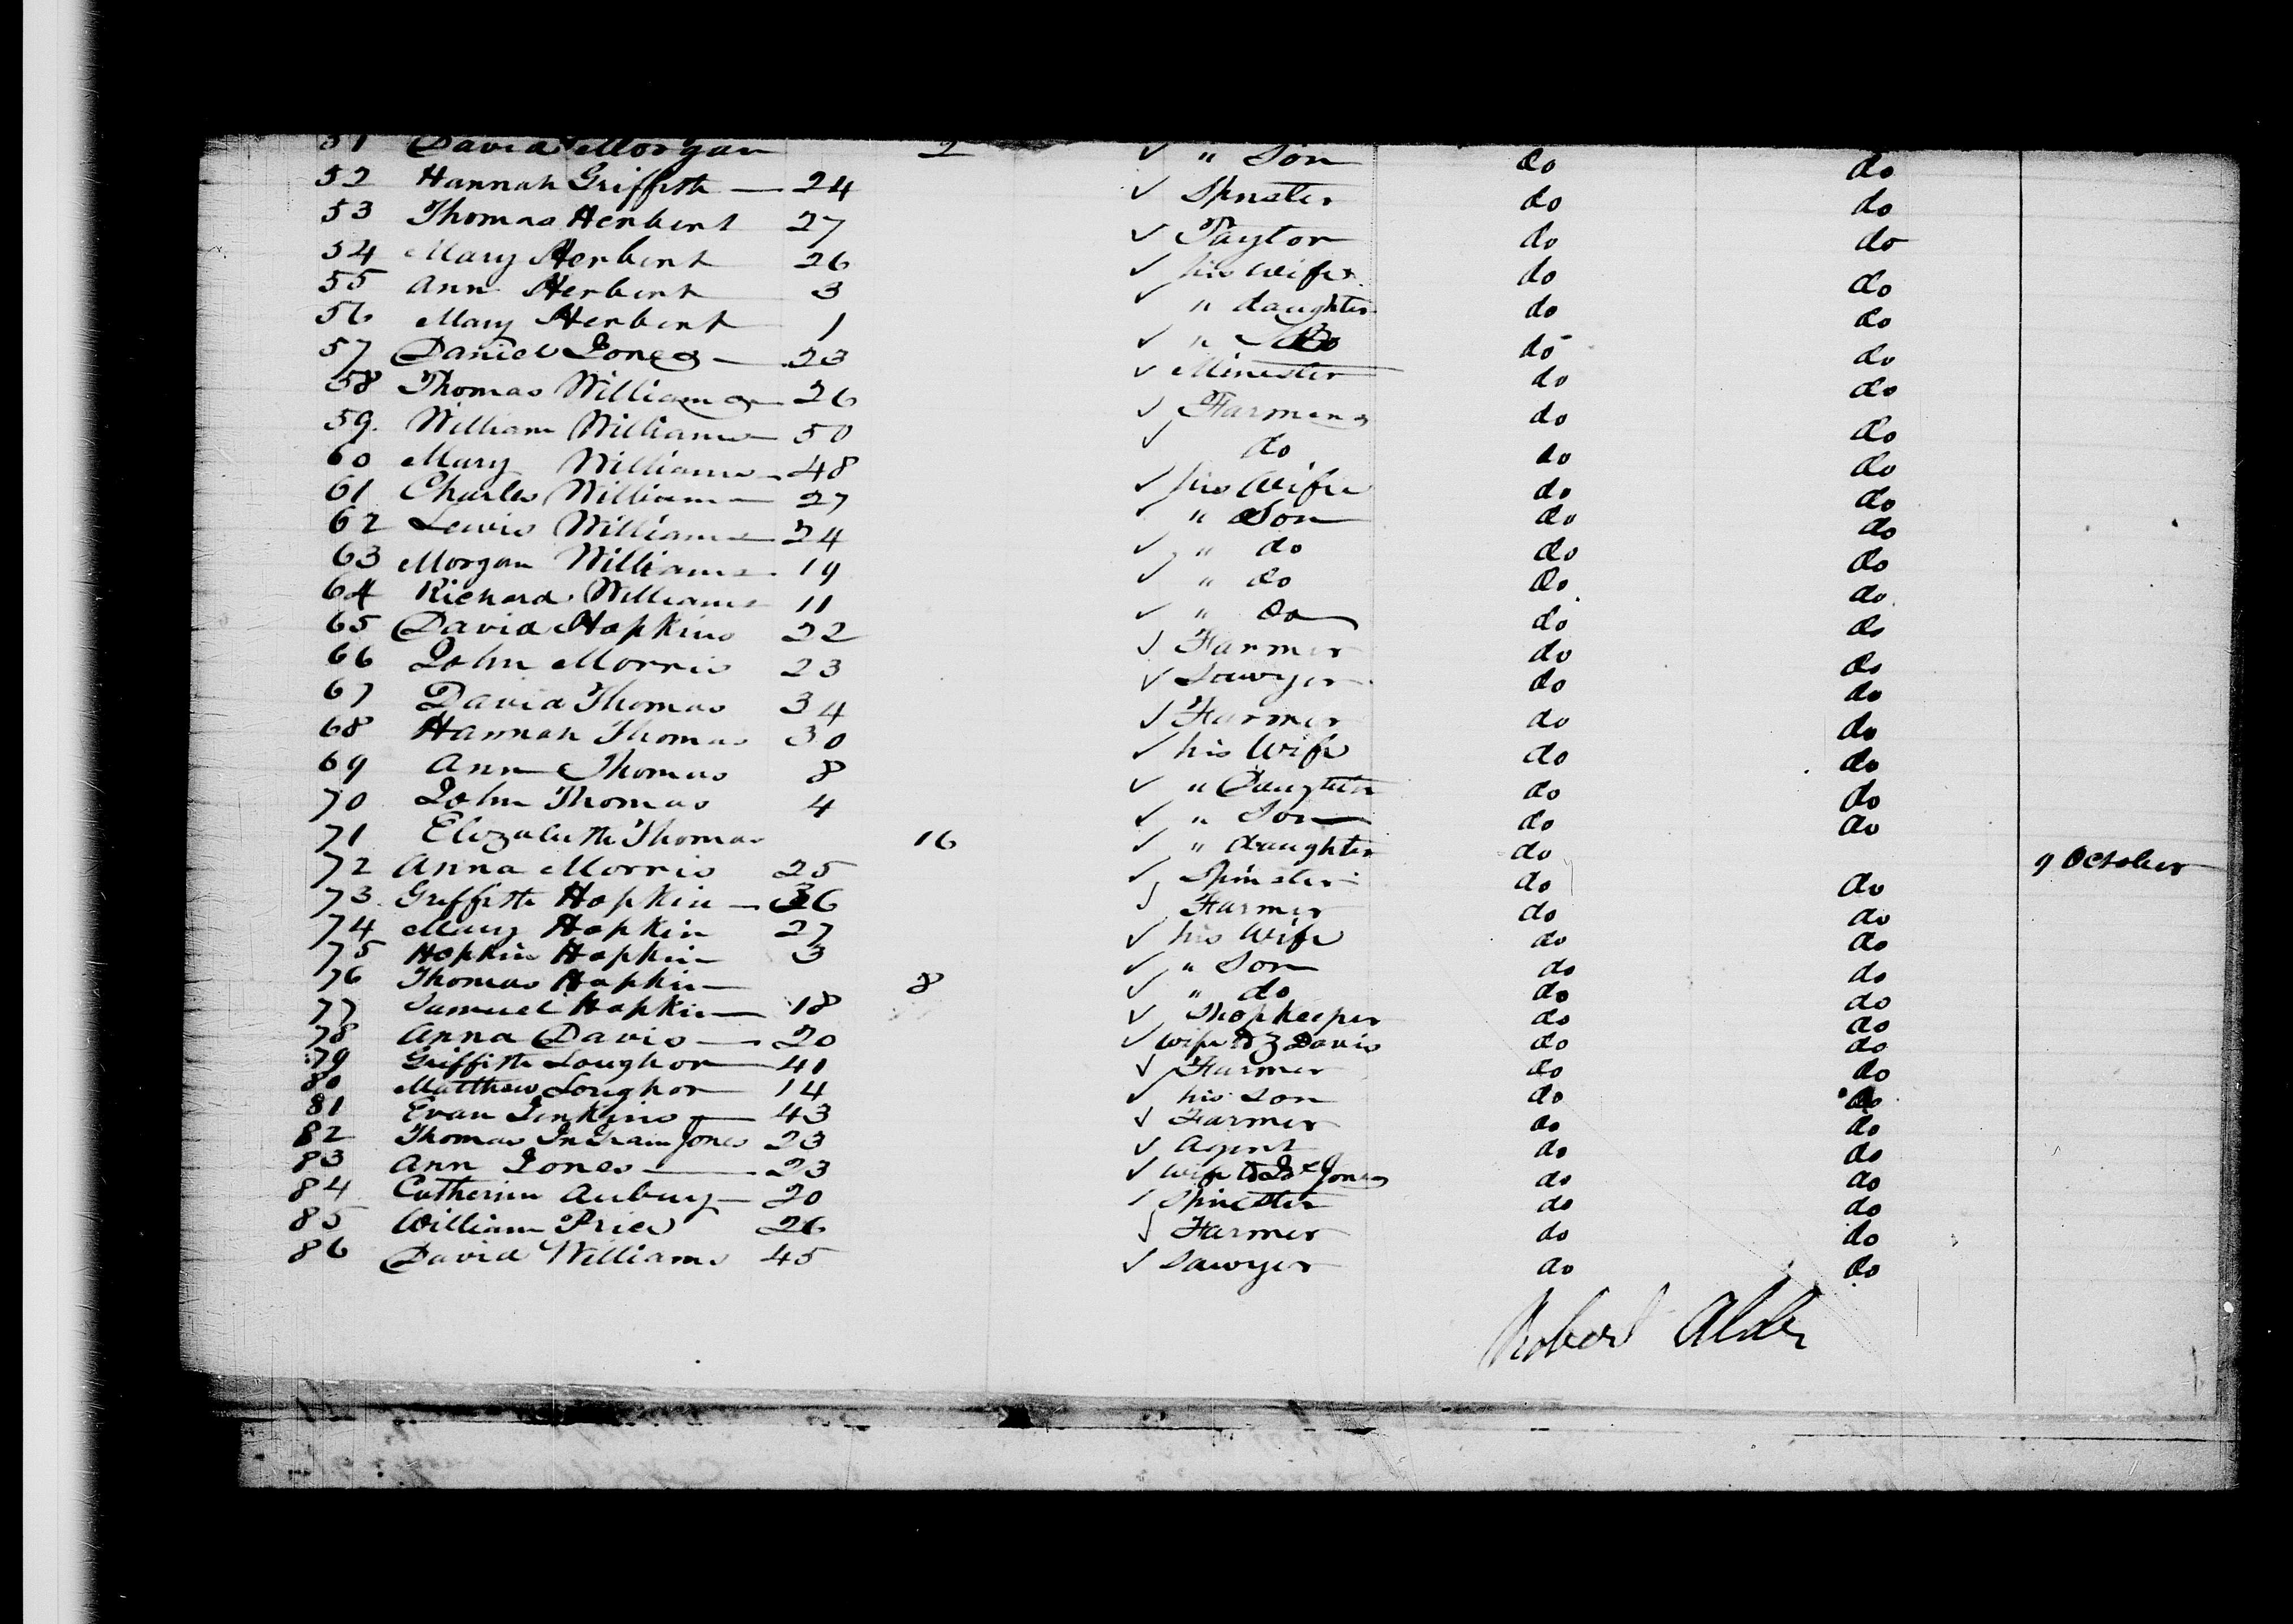 51 David Morgan 2 ✓ " Son do do
52 Hannah Griffith — 24 ✓ Spnster do do
53 Thomas Herbert 27 ✓ Taytor do do
54 Mary Herbert 26 ✓ his Wife do do
55 Ann Herbert 3 ✓ " daughter do do
56 Mary Herbert 1 ✓ " do do
57 Daniel Jones — 23 ✓ Minester do do
58 Thomas Williams — 26 ✓ Farmers do do
59. William Williams — 50 ✓ do do do
60 Mary Williams - 48 ✓ his Wife do do
61 Charles William — 27 ✓ " Son do do
62 Lewis Williams — 24 ✓ " do do do
63 Morgan Williams 19 ✓ " do do do
64 Richard Williams 11 ✓ " do do do
65 David Hopkins 22 ✓ Farmer do do
66 John Morris 23 ✓ Sawyer do do
67 David Thomas 34 ✓ Farmer do do
68 Hannah Thomas 30 ✓ his Wife do do
69 Ann Thomas 8 ✓ " Daughter do do
70 John Thomas 4 ✓ " Son do do
71 Elizabeth Thomas 16 ✓ " daughter do 9 October
72 Anna Morris 25 ✓ Spinster do do
73. Griffith Hopkin — 36 ✓ Farmer do do
74 Mary Hopkin 27 ✓ his Wife do do
75 Hopkin Hopkin 3 ✓ " Son do do
76 Thomas Hopkin 8 ✓ " do do do
77 Samuel Hopkin — 18 ✓ Shopkeeper do do
78 Anna Davis — 20 ✓ Wife to Davis do do
79 Griffith Loughor — 41 ✓ Farmer do do
80 Matthew Loughor — 14 ✓ his Son do do
81 Evan Jenkins — 43 ✓ Farmer do do
82 Thomas Jones 23 ✓ Agent do do
83 Ann Jones — 23 ✓ Wife to Jones do do
84 Catherine Aubury — 20 ✓ Spinester do do
85 William Price 26 ✓ Farmer do do
86 David Williams 45 ✓ Sawyer do do
Robert Alder